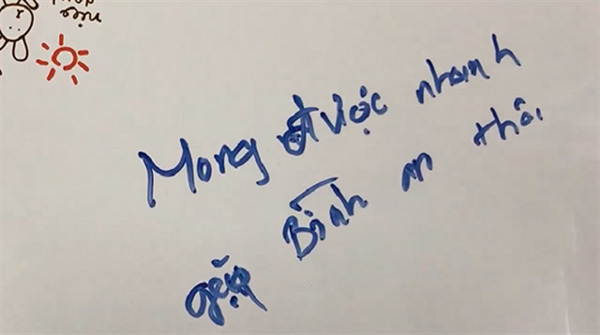 Mong được nhanh
gặp Bình an thôi